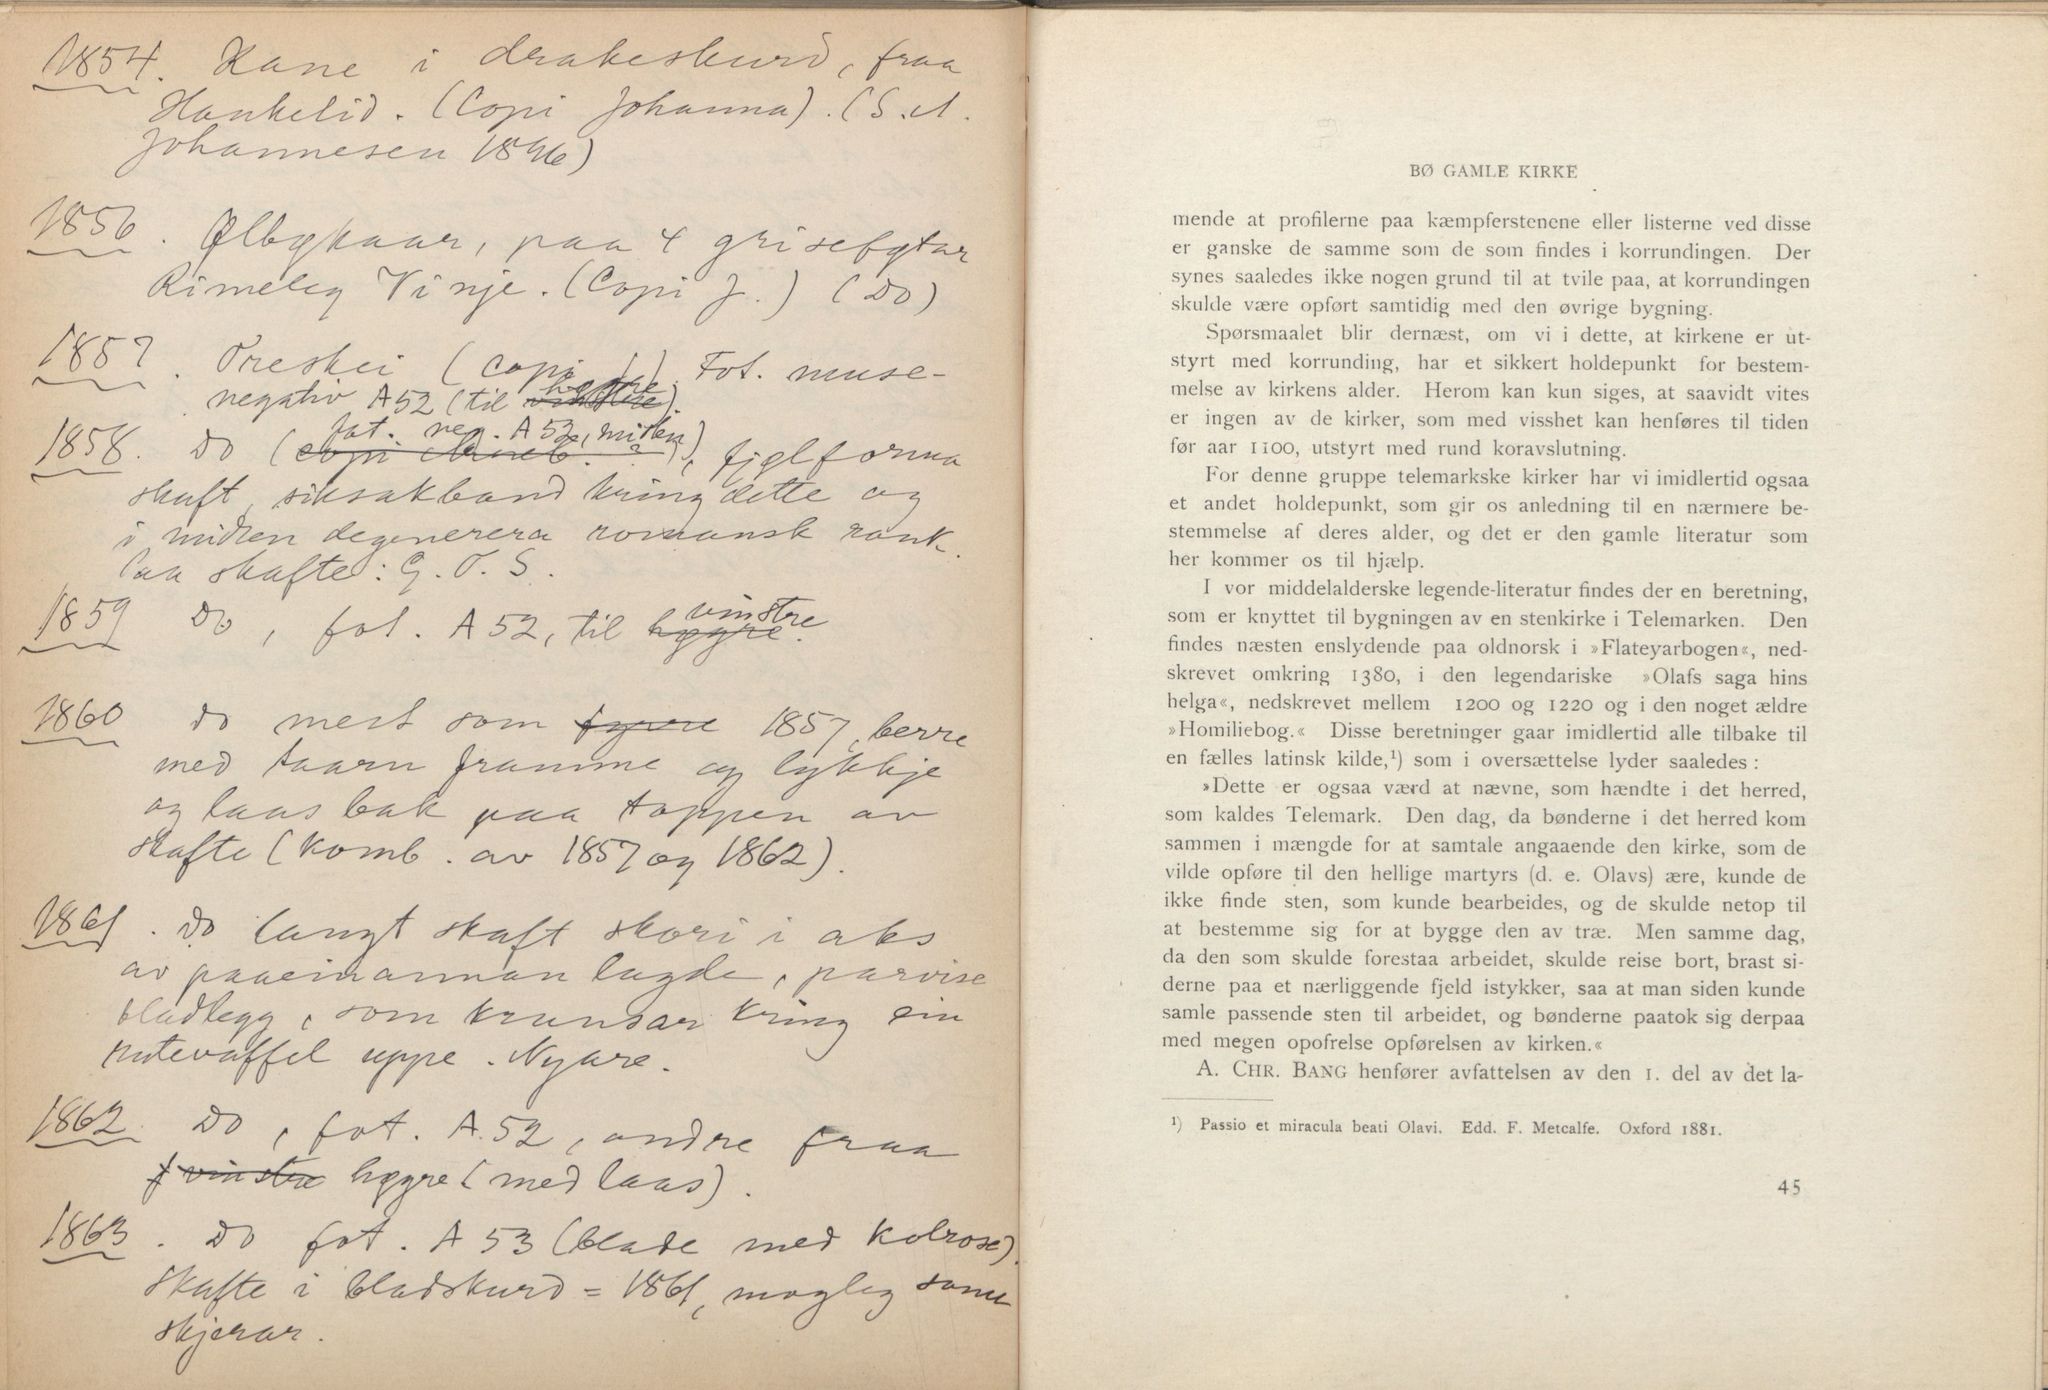 1854. Kane i drakeskurd, fraa
Haukelid. (Copi Johanna). (S. A.
Johannesen 1896)
1856. Ølbgkaar, paa 4 grisefgtar
Rimeleg Vinje. (Copi J.) (Do)
1857. Treskei (copi J.). Fot. muse-
negativ A 52 (til vinstre høgre).
1858. Do (copi fot. neg. A 53, midten), fjelforma
skaft, siksakband kring dette og
i midten degenerera romansk rank.
Paa skafte: G. T. S.
1859 Do, fot. A 52, til høgre vinstre.
1860 Do mest som fyrre 1857, berre
med taarn framme og lykkje
og laas bak paa toppen av
skafte (komb. av 1857 og 1862).
1861. Do langt skaft skori i aks
av paaeinannan lagde, parvise
bladlegg, som kransar kring ein
rutevaffel uppe. Nyare.
1862. Do, fot. A. 52, andre fraa
vinstre høgre (med laas).
1863. Do fot. A 53 (blade med kolrose).
Skafte i bladskurd = 1861, mogleg same
skjerar.
BØ GAMLE KIRKE
mende at profilerne paa kæmpferstenene eller listerne ved disse
er ganske de samme som de som findes i korrundingen. Der
synes saaledes ikke nogen grund til at tvile paa, at korrundingen
skulde være opført samtidig med den øvrige bygning.
Spørsmaalet blir dernæst, om vi i dette, at kirkene er ut-
styrt med korrunding, har et sikkert holdepunkt for bestem-
melse av kirkens alder. Herom kan kun siges, at saavidt vites
er ingen av de kirker, som med visshet kan henføres til tiden
før aar 1100, utstyrt med rund koravslutning.
For denne gruppe telemarkske kirker har vi imidlertid ogsaa
et andet holdepunkt, som gir os anledning til en nærmere be-
stemmelse af deres alder, og det er den gamle literatur som
her kommer os til hjælp.
I vor middelalderske legende-literatur findes der en beretning,
som er knyttet til bygningen av en stenkirke i Telemarken. Den
findes næsten enslydende paa oldnorsk i »Flateyarbogen«, ned-
skrevet omkring 1380, i den legendariske »Olafs saga hins
helga«, nedskrevet mellem 1200 og 1220 og i den noget ældre
»Homiliebog.« Disse beretninger gaar imidlertid alle tilbake til
en fælles latinsk kilde,¹) som i oversættelse lyder saaledes :
»Dette er ogsaa værd at nævne, som hændte i det herred,
som kaldes Telemark. Den dag, da bønderne i det herred kom
sammen i mængde for at samtale angaaende den kirke, som de
vilde opføre til den hellige martyrs (d. e. Olavs) ære, kunde de
ikke finde sten, som kunde bearbeides, og de skulde netop til
at bestemme sig for at bygge den av træ. Men samme dag,
da den som skulde forestaa arbeidet, skulde reise bort, brast si-
derne paa et nærliggende fjeld istykker, saa at man siden kunde
samle passende sten til arbeidet, og bønderne paatok sig derpaa
med megen opofrelse opførelsen av kirken.«
A. CHR. BANG henfører avfattelsen av den 1. del av det la-
¹) Passio et miracula beati Olavi. Edd. F. Metcalfe. Oxford 1881.
45